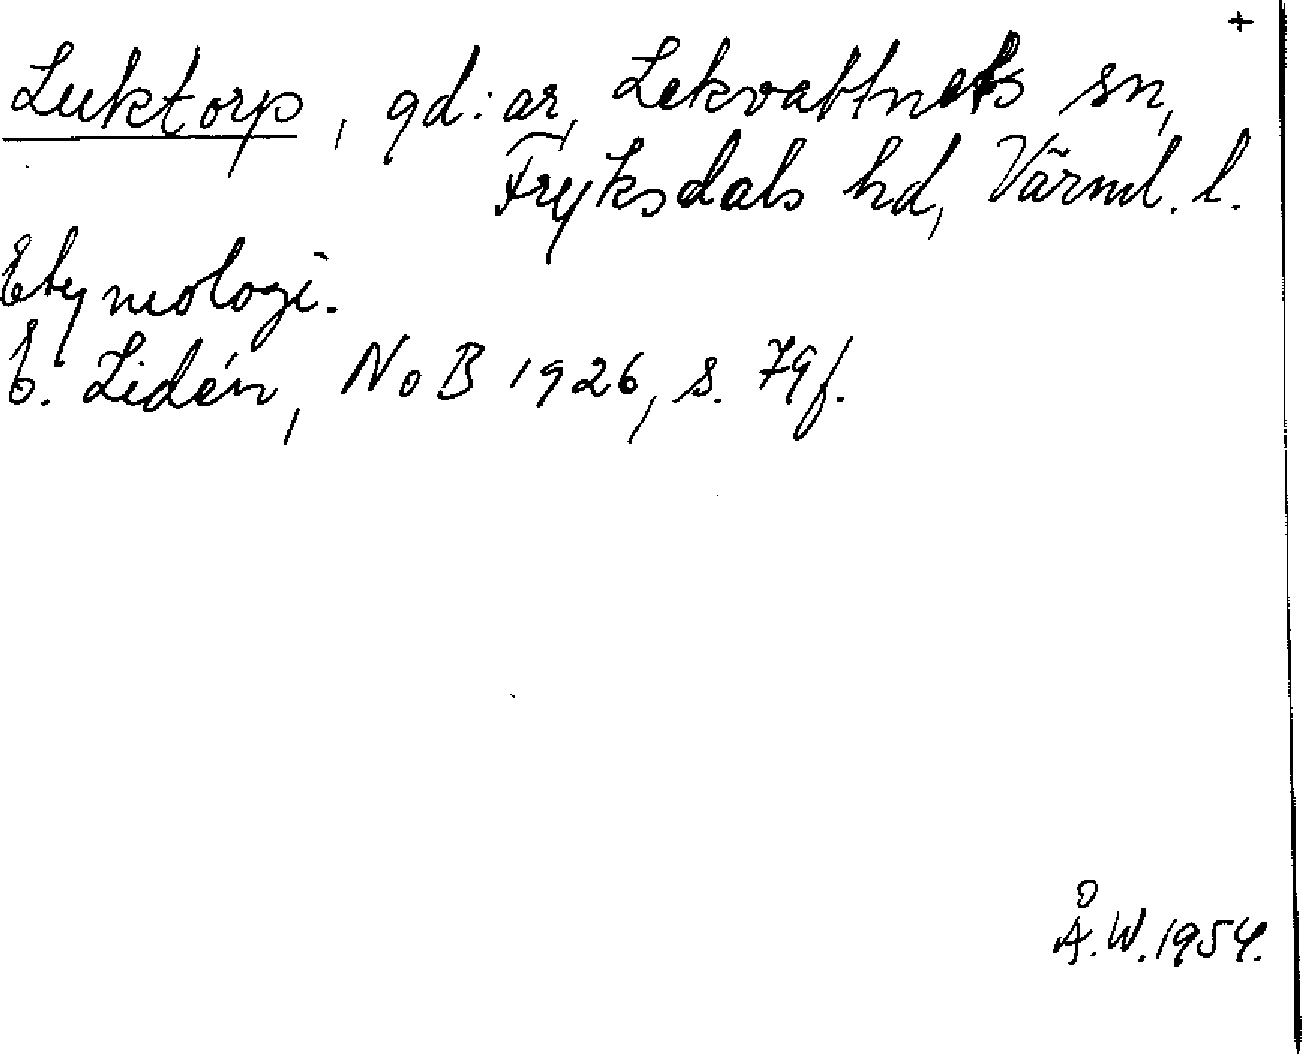 +
Luktorp, gd:ar, Lekvattnets sn,
Fryksdals hd, Värml. l.
Etymologi.
E. Lidén, NoB 1926, s. 79f.
Å.W.1954.